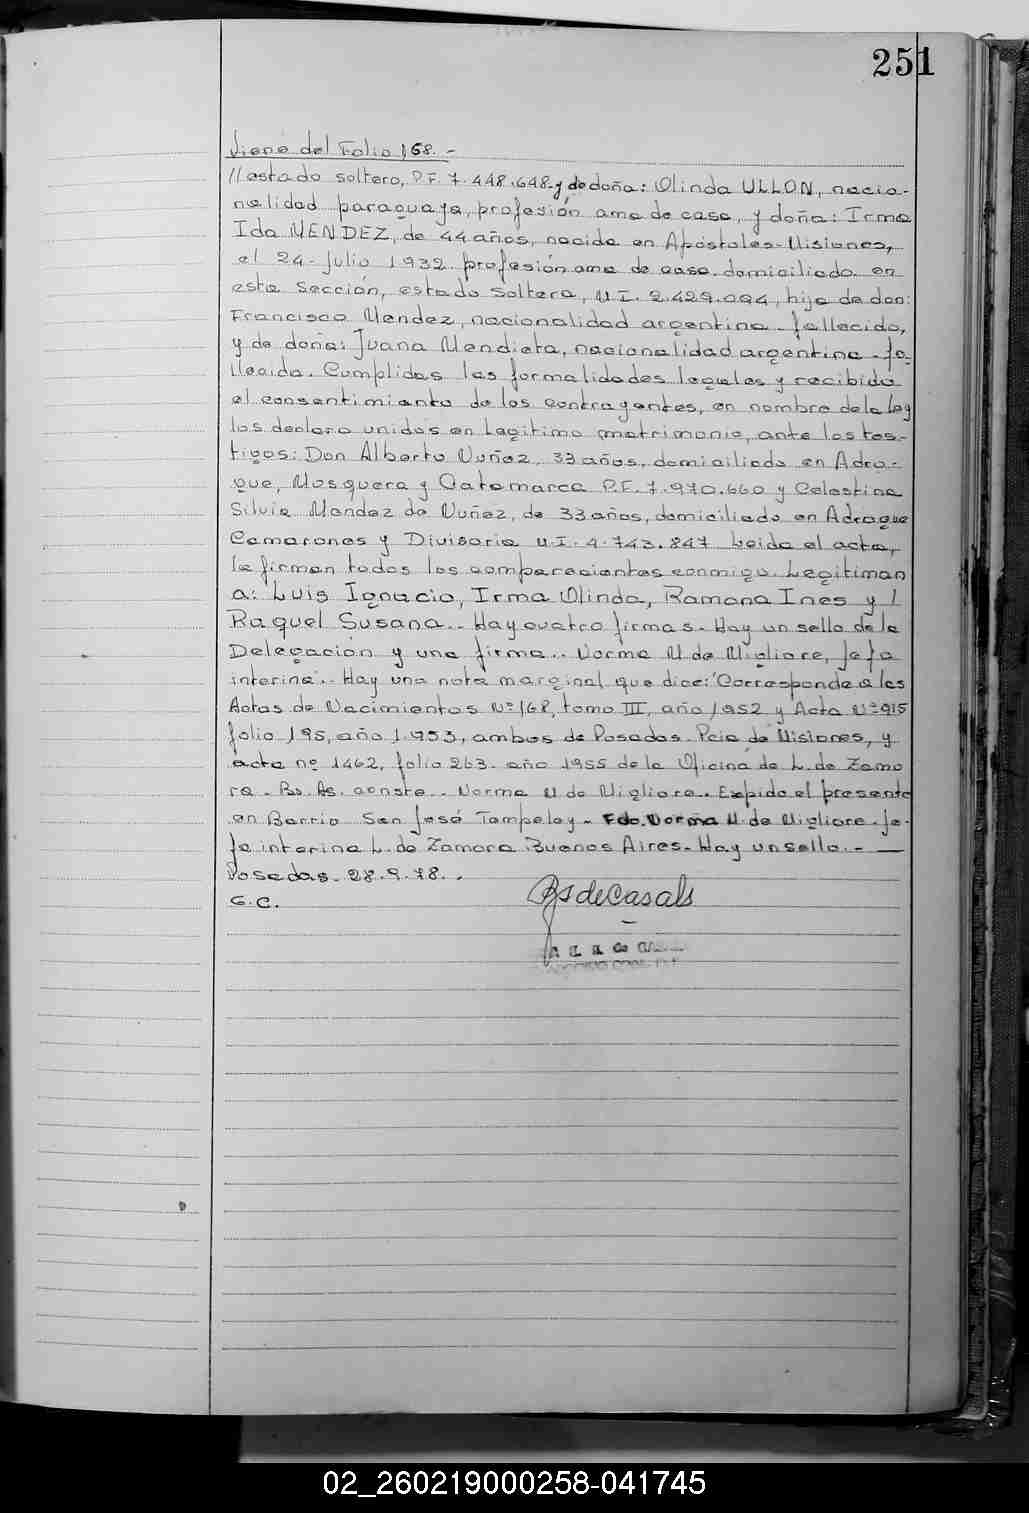 251
Viene del Folio 168.-
//estado soltero, D.F. 7.448.648 y de doña: Olinda ULLON, nacio-
nalidad paraguaya, profesión ama de casa, y doña: Irma
Ida MENDEZ, de 44 años, nacida en Apóstoles-Misiones,
el 24-julio 1932 profesión ama de casa domiciliado en
esta Sección, estado Soltera, M.I. 2.429.094, hija de don:
Francisco Mendez, nacionalidad argentina fallecido,
y de doña: Juana Mendieta, nacionalidad argentina-fa-
llecida. Cumplidas las formalidades legales y recibido
el consentimiento de los contrayentes, en nombre de la Ley
los declaro unidos en Legítimo matrimonio, ante los tes-
tigos: Don Alberto Nuñez, 33 años, domiciliado en Adro-
gue, Mosquera y Catamarca D.F. 7.970.660 y Celestina
Silvia Mendez de Nuñez, de 33 años, domiciliado en Adrogue
Camarones y Divisoria M.I. 4.743.847 Leida el acta,
la firman todos los comparecientes conmigo. Legitiman
a: Luis Ignacio, Irma Olinda, Ramona Ines y /
Raquel Susana.- Hay cuatro firmas. Hay un sello de la
Delegación y una firma.. Norma M. de Migliore, Jefa
interina.. Hay una nota marginal que dice: "Corresponde a las
Actas de Nacimientos Nº 168, tomo III, año 1952 y Acta Nº 915
folio 195, año 1.953, ambos de Posadas-Pcia de Misiones, y
acta nº 1462, folio 263 año 1955 de la Oficina de L. de Zamo
ra - Bs. As. conste.. Norma M de Migliore. Expido el presente
en Barrio San José Temperley- Fdo. Norma M. de Migliore-Je-
fa interina L. de Zamora Buenos Aires-Hay un sello.-
Posadas. 28.9.78..
G.C.
de Casals
02_260219000258-041745